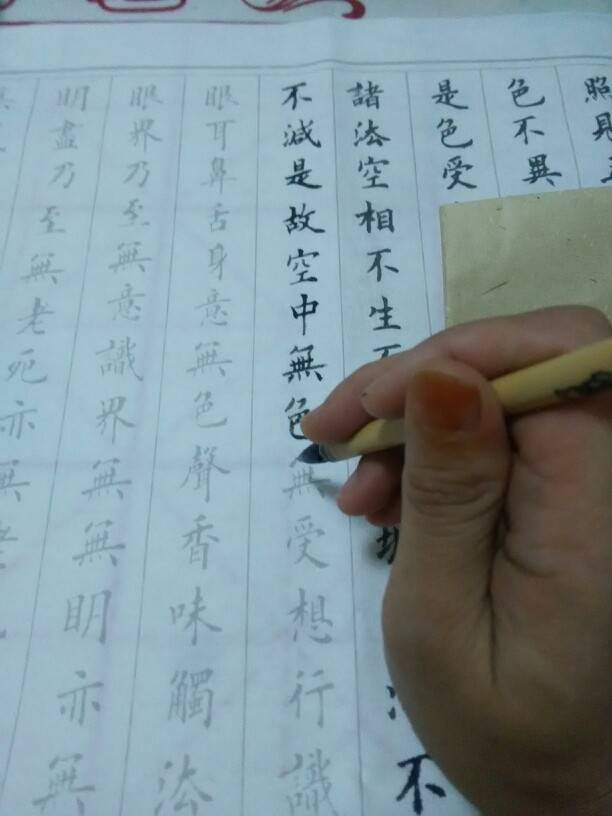 照見
色不異
是色受
諸法空相不生不
不
不減是故空中無色無受想行識
眼耳鼻舌身意無色聲香味觸法
眼界乃至無意識界無無明亦無
明盡乃至無老死亦無